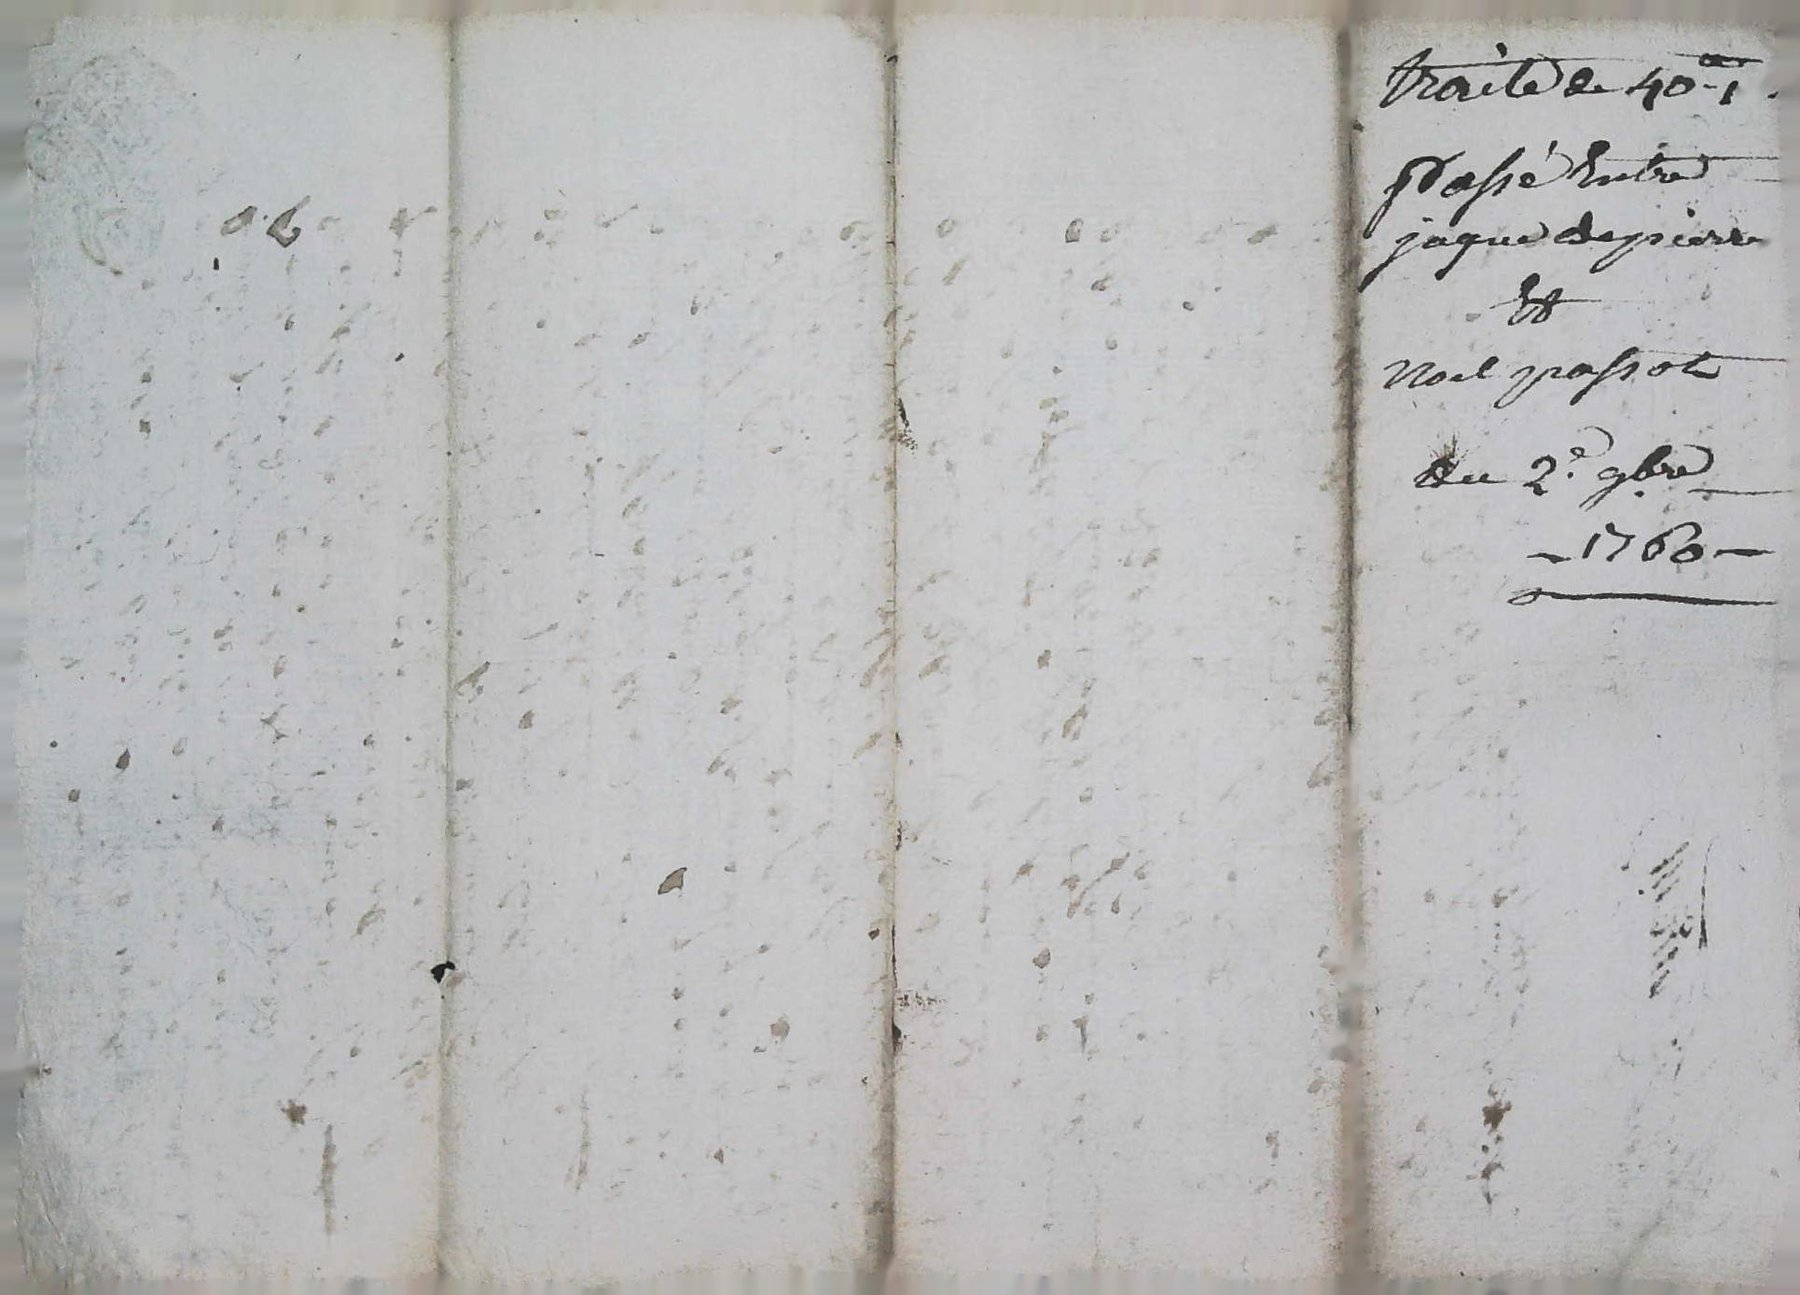 traité de 40
passé Entre
jaque depierre
Et
Noel passot
du 2.e 9bre
- 1760 -